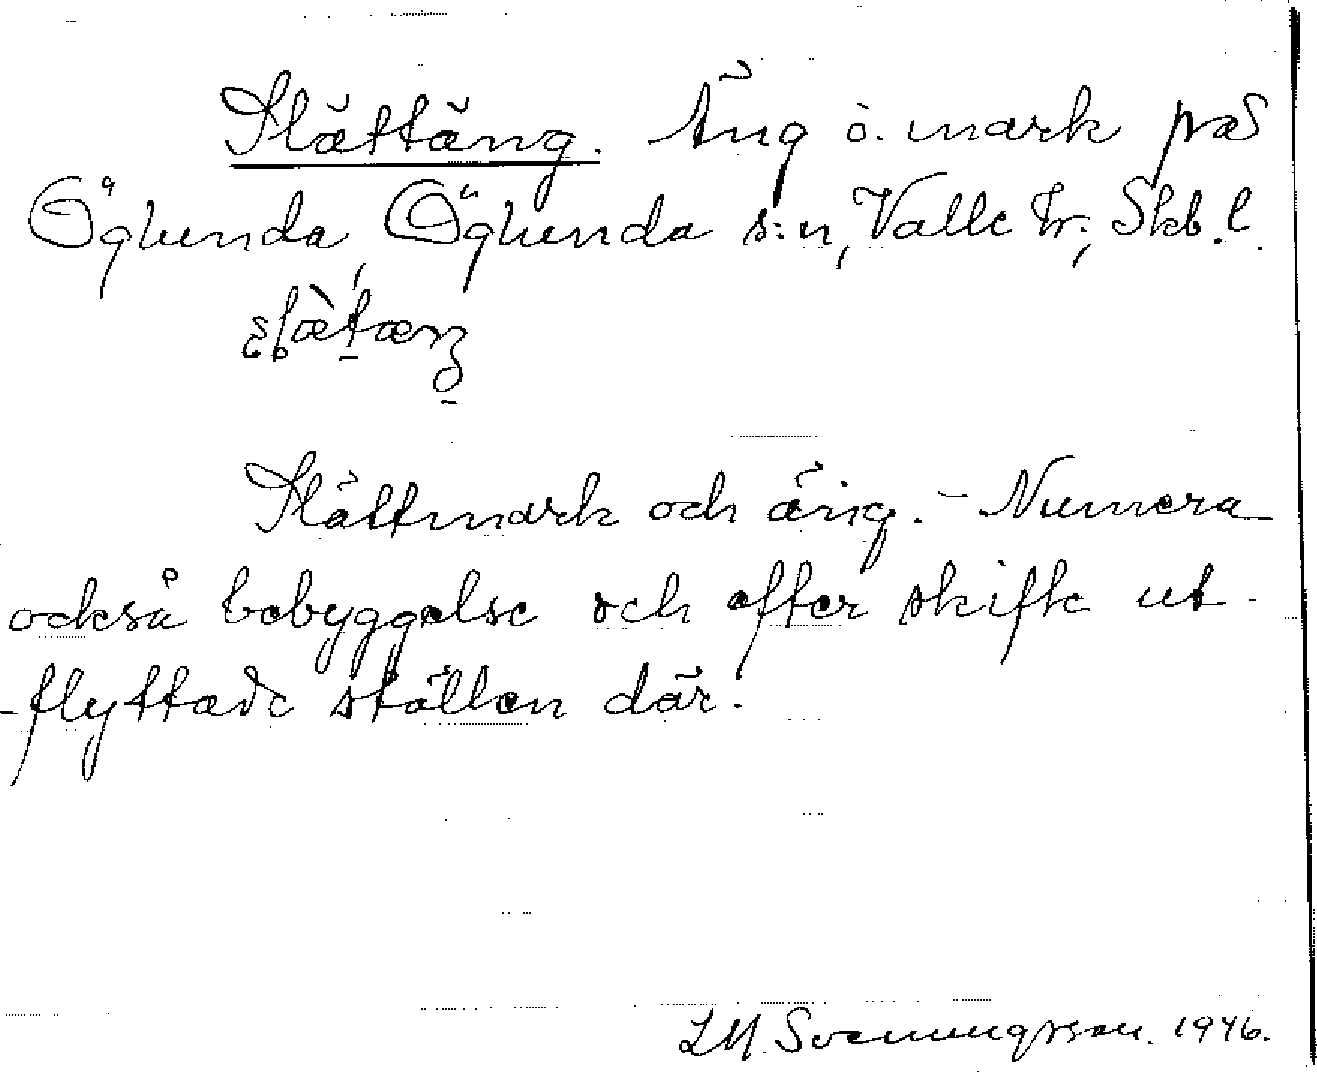 Slättäng. Äng o. mark på
Öglunda, Öglunda s:n, Valle hr; Skb. l.
Slättmark och äng. - Numera
också bebyggelse och efter skifte ut-
-flyttade ställen där.
LM. Svenungsson. 1946.